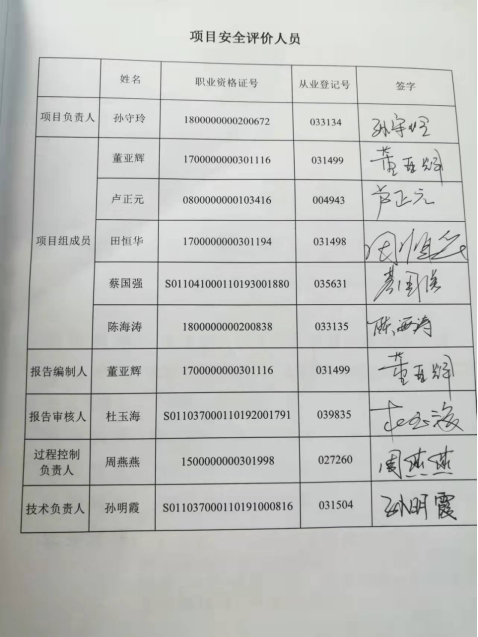 项目安全评价人员
姓名 职业资格证号 从业登记号 签字
项目负责人 孙守玲 1800000000200672 033134 孙守玲
项目组成员
董亚辉 1700000000301116 031499 董亚辉
卢正元 0800000000103416 004943 卢正元
田恒华 1700000000301194 031498 田恒华
蔡国强 S011041000110193001880 035631 蔡国强
陈海涛 1800000000200838 033135 陈海涛
报告编制人 董亚辉 1700000000301116 031499 董亚辉
报告审核人 杜玉海 S011037000110192001791 039835 杜玉海
过程控制
负责人 周燕燕 1500000000301998 027260 周燕燕
技术负责人 孙明霞 S011037000110191000816 031504 孙明霞